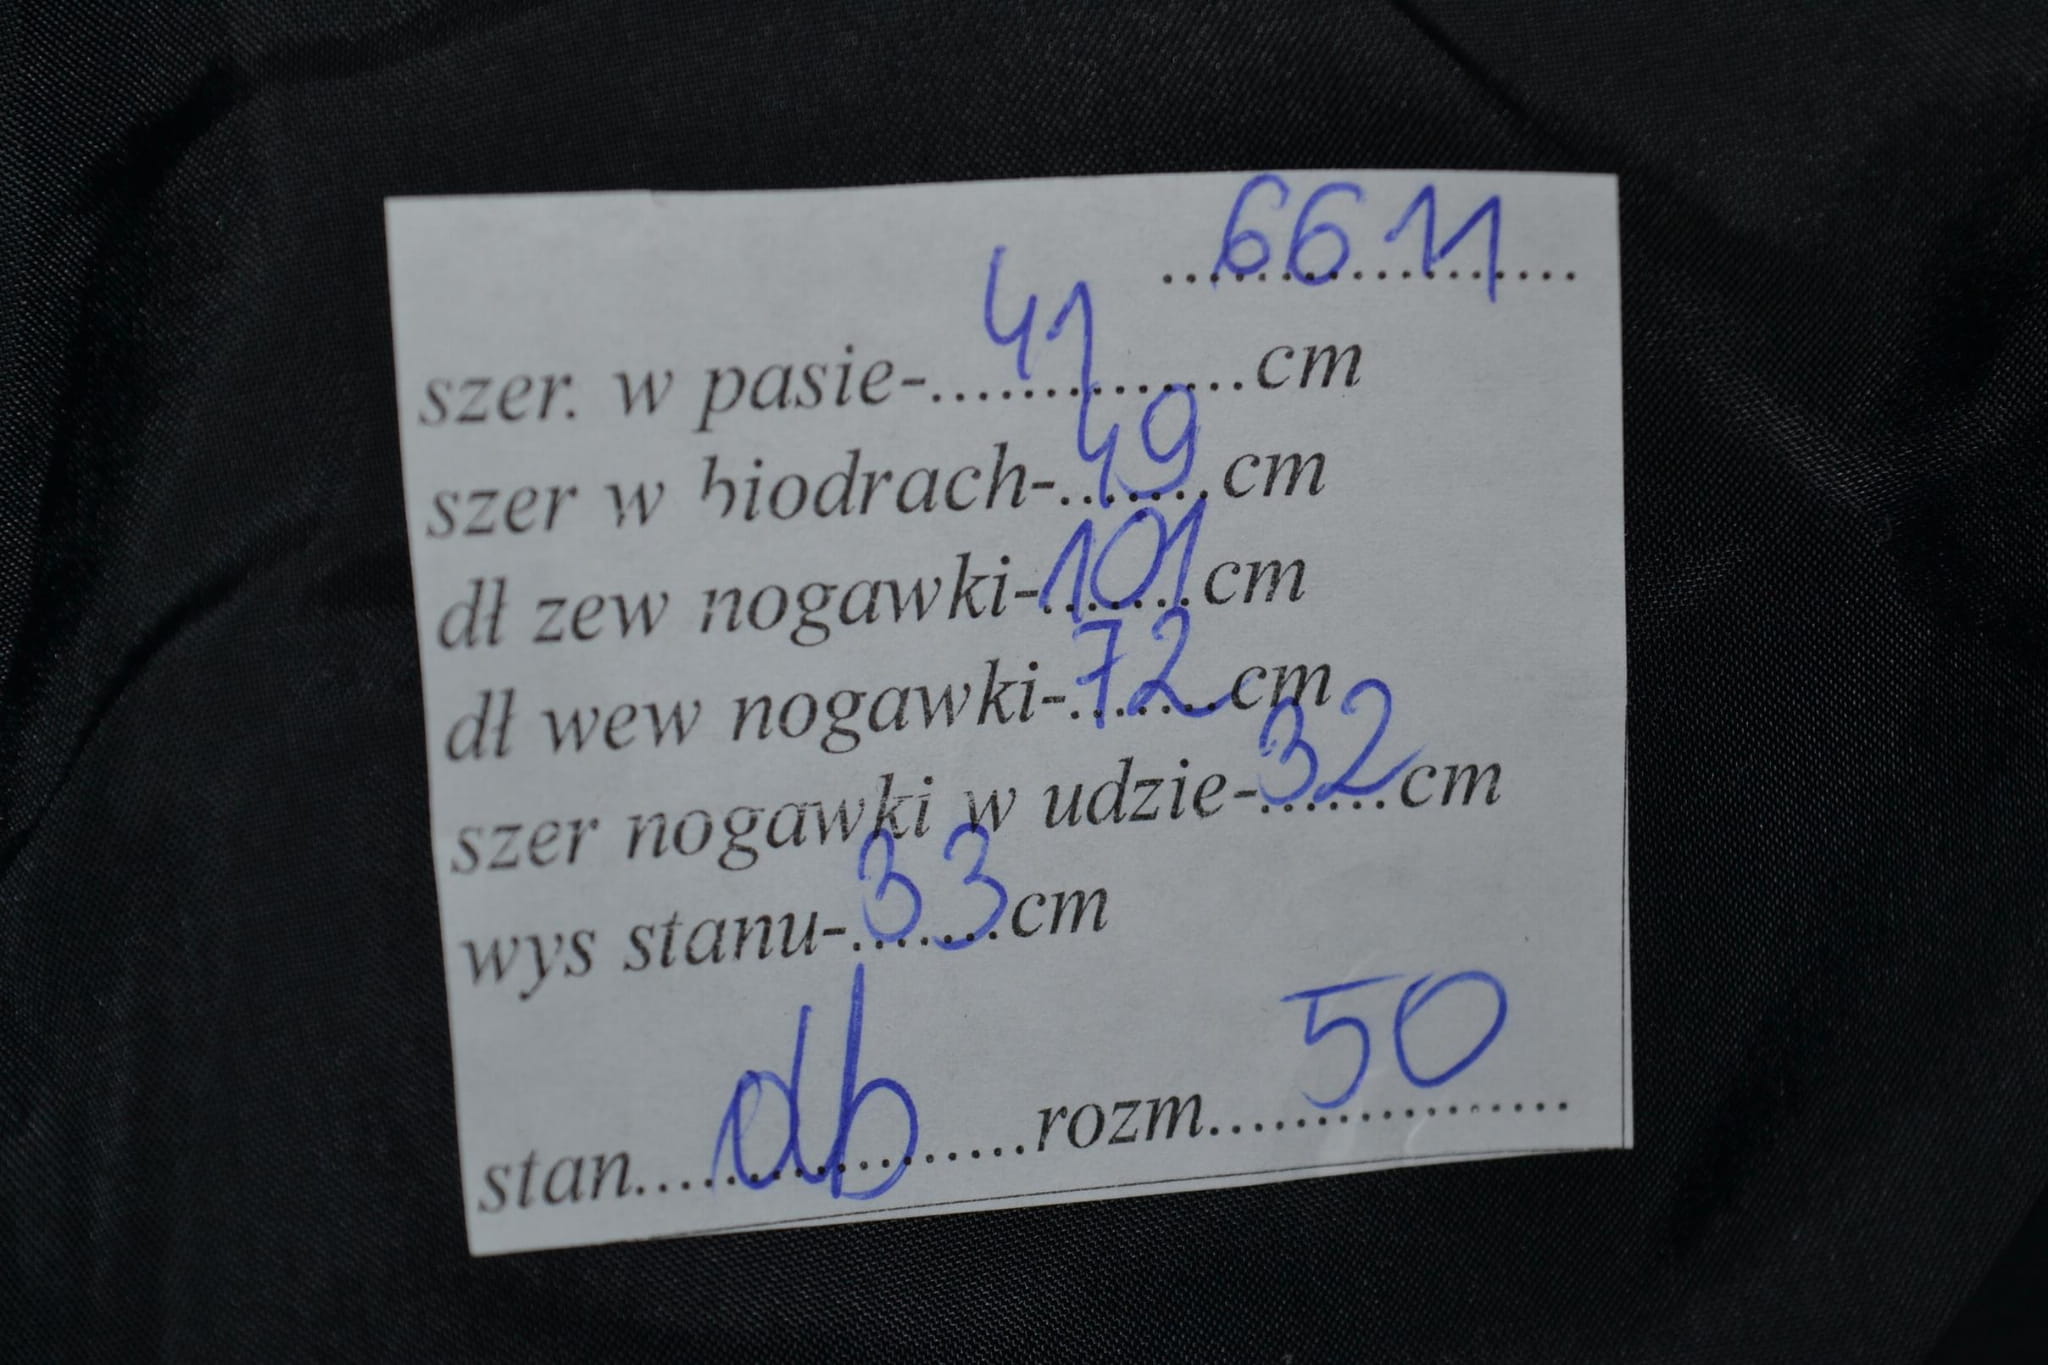 6611
szer. w pasie-41cm
szer w biodrach-49cm
dł zew nogawki-101cm
dł wew nogawki-72cm
szer nogawki w udzie-32cm
wys stanu-33cm
stan db rozm 50